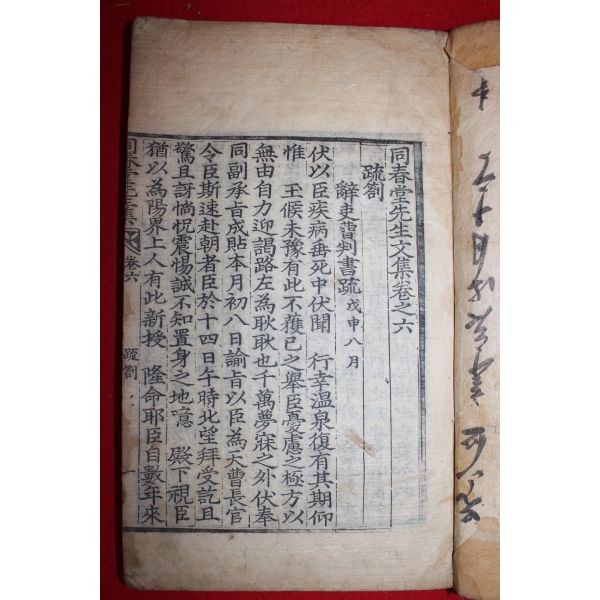 同春堂先生文集卷之六
疏劄
辭吏曹判書疏 戊申八月
伏以臣疾病垂死中伏聞 行幸溫泉復有其期仰
惟 王候未豫有此不獲已之舉臣憂慮之極方以
無由自力迎謁路左爲耿耿也千萬夢寐之外伏奉
同副承旨成貼本月初八日諭旨以臣爲天曹長官
令臣斯速赴朝者臣於十四日午時北望拜受訖且
驚且訝惝怳震惕誠不知置身之地噫 殿下視臣
猶以爲陽界上人有此新授 隆命耶臣自數年來
同春堂先生集 卷六 疏劄 一